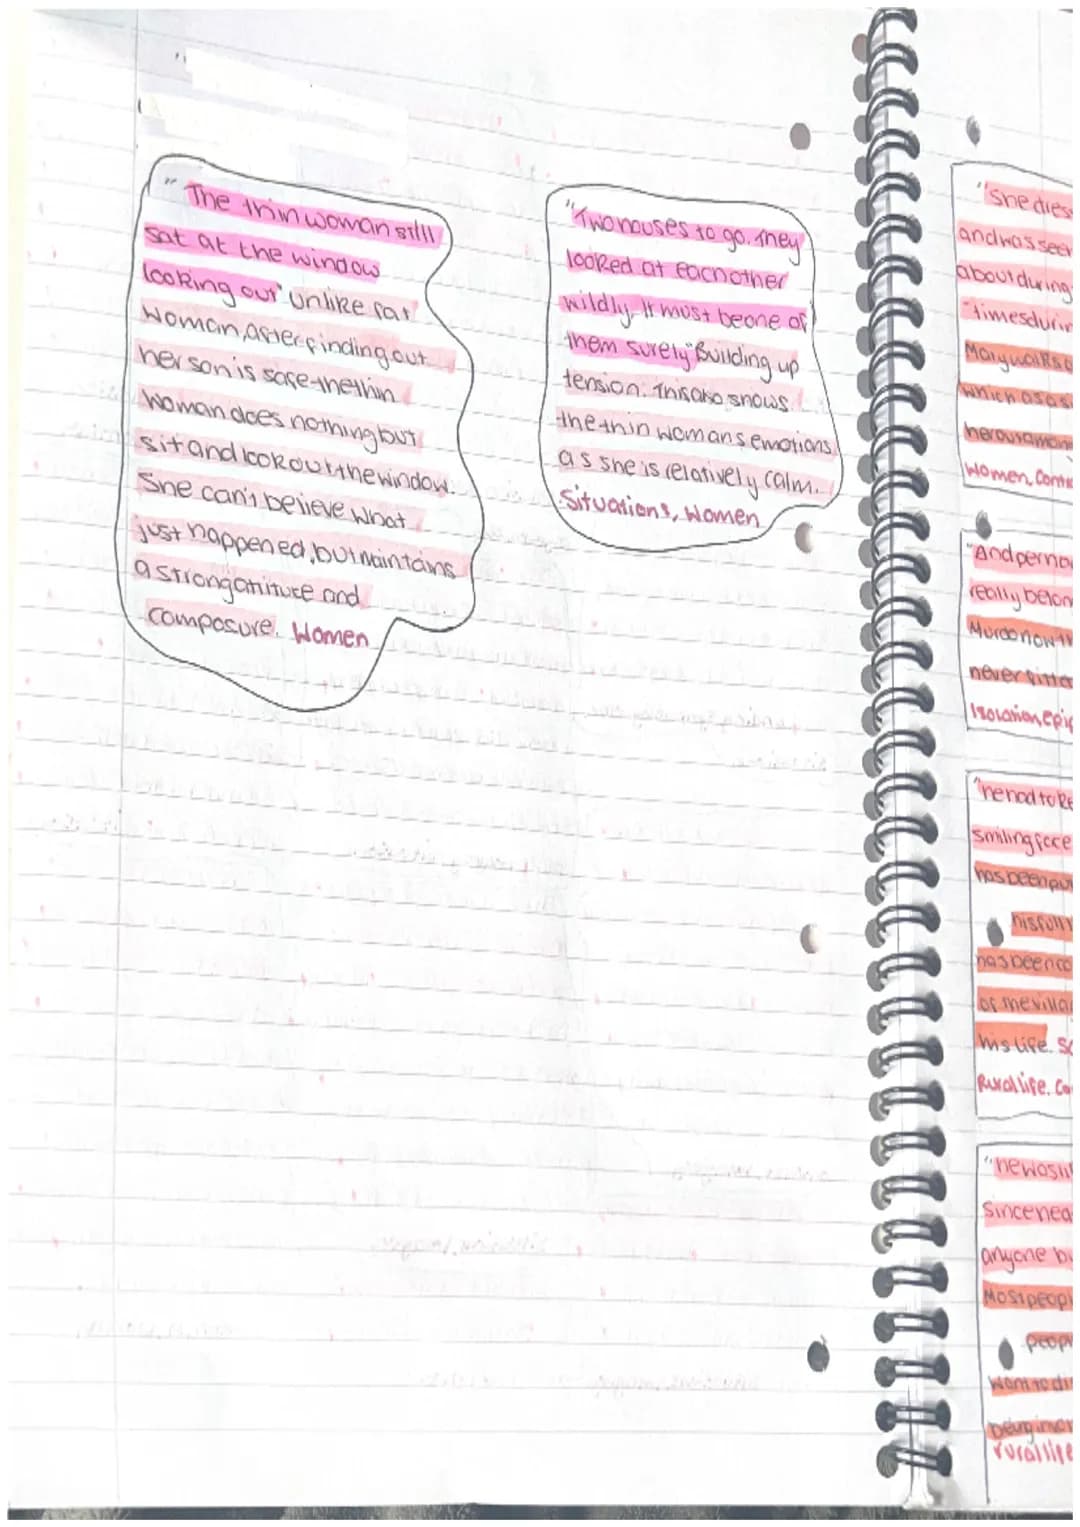 " The thin woman still
sat at the window
looking out" Unlike fat
woman, after finding out
her son is safe-the thin
woman does nothing but
sit and look out the window.
She can't believe what
just happened, but maintains
a strong attiture and
composure. Women
"Two houses to go. They
looked at each other
wildly. It must be one of
them surely" Building up
tension. This also shows
the thin womans emotions
as she is relatively calm.
Situations, Women
"She
and was
about during
times
Mary
which
Women,
"And
really
Murdo now
never
Isolation,
"he had to
smiling face
has been
his
has been
of the
his life.
Rural life.
"he was
since
anyone
Most
want to
being
rural life